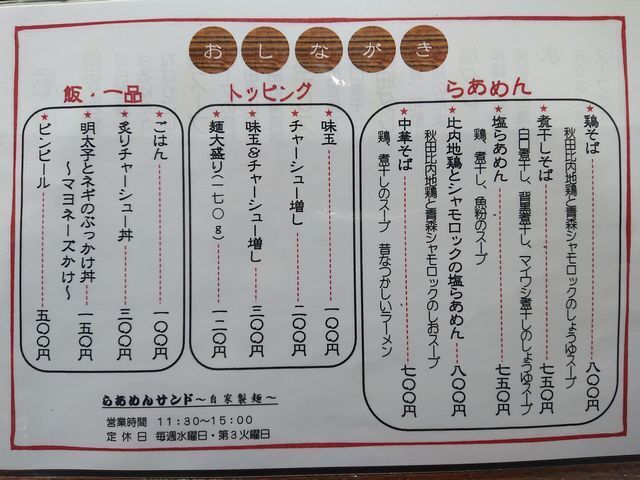 おしながき
らあめん
★鶏そば 八〇〇円
秋田比内地鶏と青森シャモロックのしょうゆスープ
★煮干しそば 七五〇円
白口煮干し、背黒煮干し、マイワシ煮干しのしょうゆスープ
★塩らあめん 七五〇円
鶏、煮干し、魚粉のスープ
★比内地鶏とシャモロックの塩らあめん 八〇〇円
秋田比内地鶏と青森シャモロックのしおスープ
★中華そば 七〇〇円
鶏、煮干しのスープ 昔なつかしいラーメン
トッピング
★味玉 一〇〇円
★チャーシュー増し 二〇〇円
★味玉&チャーシュー増し 三〇〇円
★麺大盛り(一七〇g) 一二〇円
飯・一品
★ごはん 一〇〇円
★炙りチャーシュー丼 三〇〇円
★明太子とネギのぶっかけ丼 一五〇円
～マヨネーズかけ～
★ビンビール 五〇〇円
らあめんサンド～自家製麺～
営業時間 11:30～15:00
定休日 毎週水曜日・第3火曜日